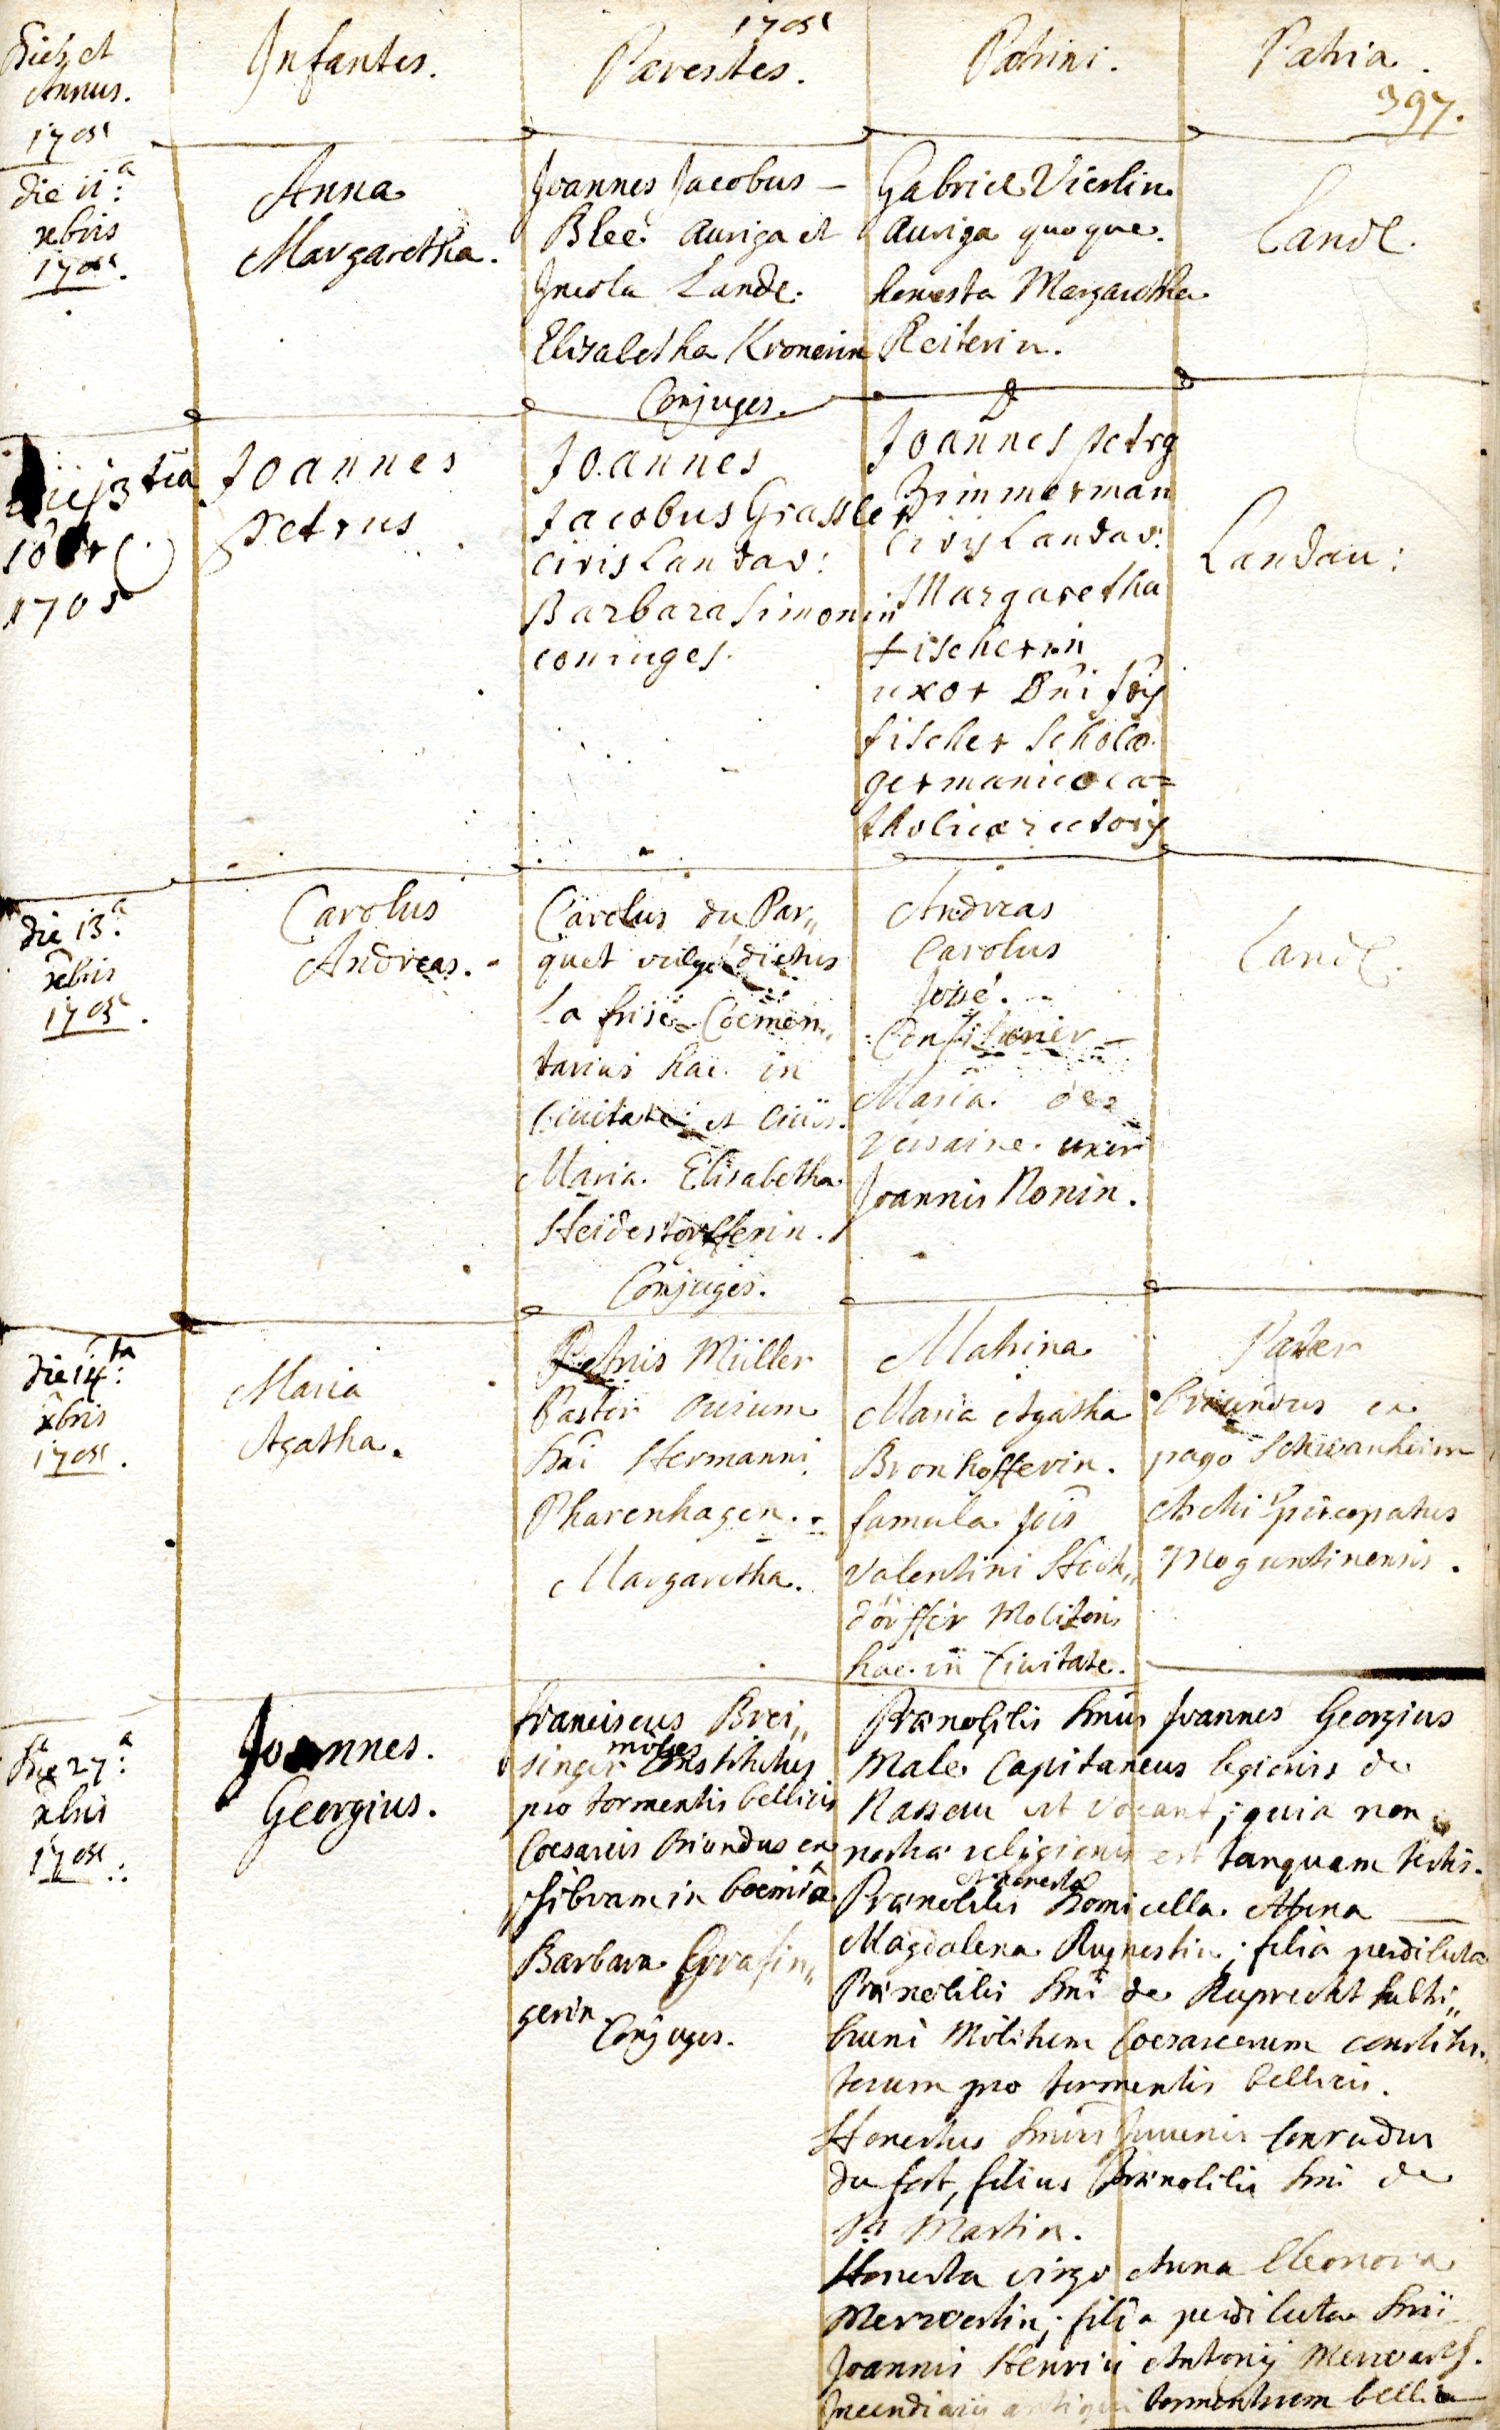 1705
Dies et
Annus.
Infantes.
Parentes.
Patrini.
Patria.
397.
1705
die 11.a
xbris
1705.
Anna
Margaretha.
Joannes Jacobus
Blee. auriga et
Incola Lande.
Elisabetha Kronerin
Conjuges.
Gabriel Vierlin
auriga quoque.
honesta Margaretha
Reiterin.
Land.
die 13 tia
1705
Joannes
petrus
Joannes
Jacobus Grassler
civis Landav:
Barbara Simonin
coniuges.
Joannes petrg
Zimmerman
civis Landav:
Margaretha
fischerin
uxor Dni Jois
fischer scholæ
germanicoca=
tholicæ rectoris
Landau:
die 13.a
xbris
1705.
Carolus
Andreas.
Carolus du Par„
quet vulgo dictus
la frise Coemen„
tarius hac in
Civitate et Civis.
Maria Elisabetha
Heidestorfferin.
Conjuges.
Andreas
Carolus
José.
Maria de
Versaine uxor
Joannis Nonin.
Land.
die 14.ta
xbris
1705.
Maria
Agatha.
Petrus Müller
Pastor ovium
Dni Hermanni
Pharenhagen.
Margaretha.
Matrina
Maria Agatha
Bronhofferin.
famula Jois
Valentini Hech„
dörffer Molitoris
hac in Civitate.
Pater
Oriundus ex
pago Schwanheim
Archi Episcopatus
Moguntinensis.
die 27.a
xbris
1705.
Joannes.
Georgius.
Franciscus Brei„
singer miles Constitutus
pro tormentis bellicis
Coesareis Oriundus ex
in boemia
Barbara Grasin„
gerin
Conjuges.
Prænobilis Dnus Joannes Georgius
Male Capitaneus legionis de
Nassau ut vocant; quia non
nostræ religionis est tanquam testis.
Prænobilis Domicella Anna
Magdalena; filia perdilecta
Prænobilis Dni de Ruprecht subtri„
buni Militum Coesareorum constitu„
torum pro tormentis bellicis.
Honestus Dnus Juvenis Conradus
du fort, filius Prænobilis Dni de
St Martin.
Honesta virgo Anna Eleonora
Merwertin; filia perdilecta Dni
Joannis Henrici Antonij Merwart.
Incendiarii antiqui tormentorum bellic